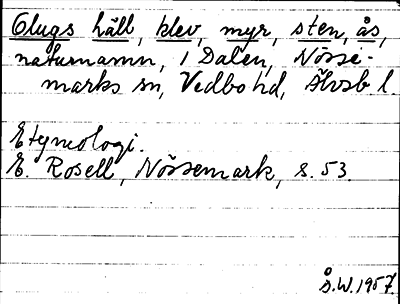 Olugs häll, klev, myr, sten, ås,
naturnamn, i Dalen, Nösse-
marks sn, Vedbo hd, Älvsb l.
Etymologi.
E. Rosell, Nössemark, s. 53.
Å.W. 1957.